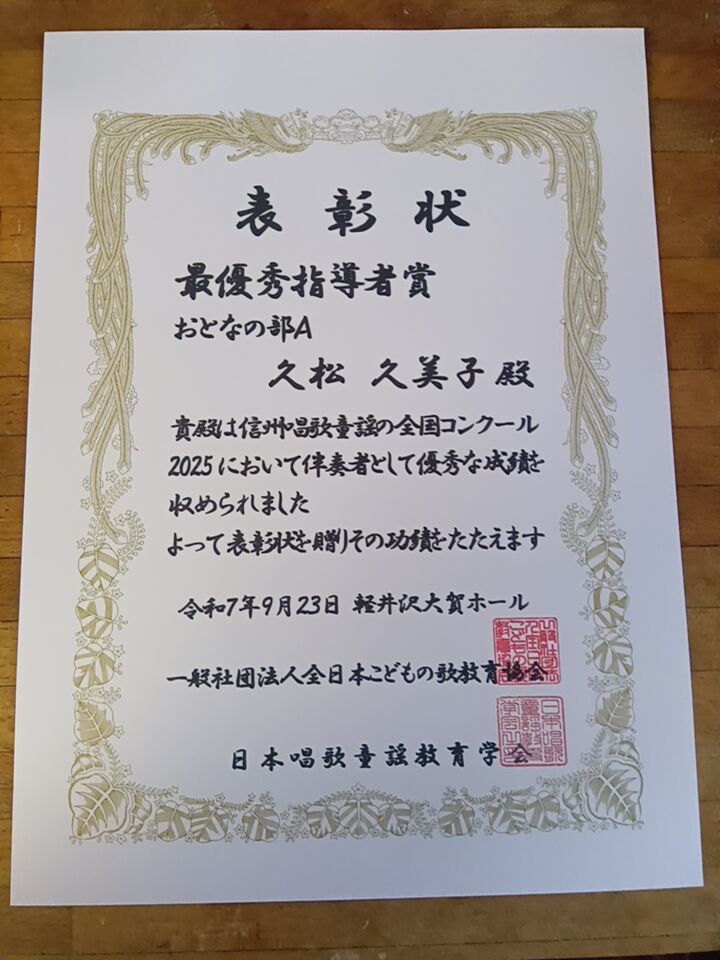 表彰状
最優秀指導者賞
おとなの部A
久松 久美子 殿
貴殿は信州唱歌童謡の全国コンクール
2025 において伴奏者として優秀な成績を
収められました
よって表彰状を贈りその功績をたたえます
令和7年9月23日 軽井沢大賀ホール
一般社団法人全日本こどもの歌教育協会
日本唱歌童謡教育学会